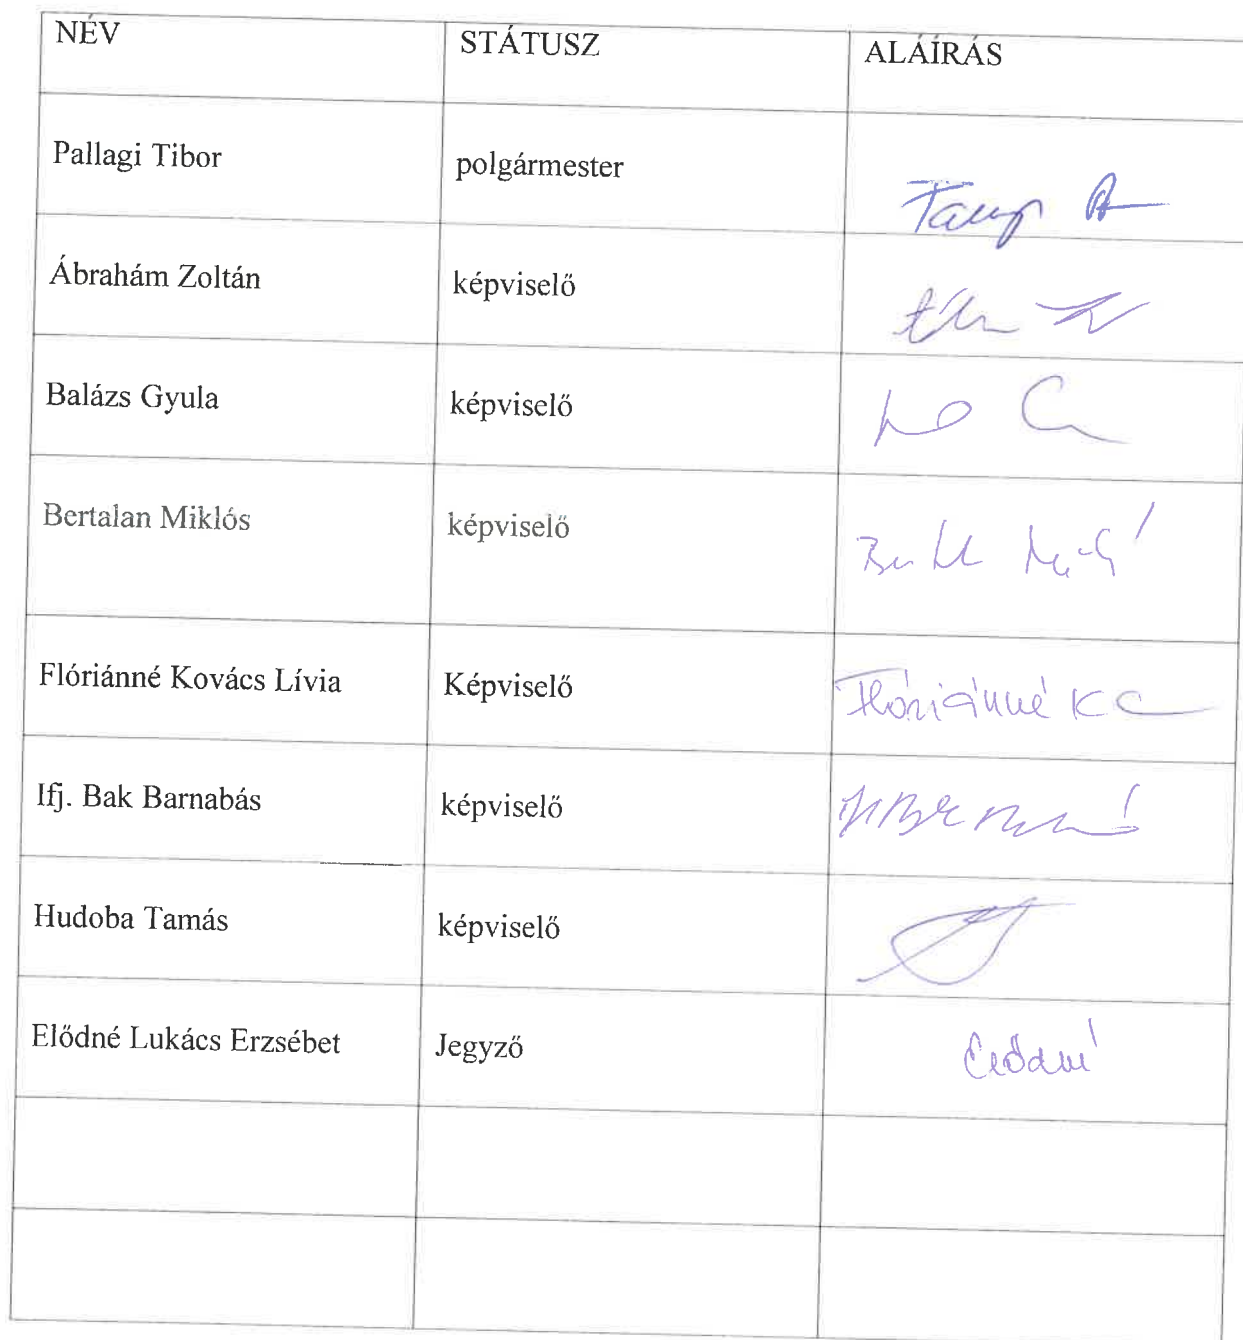 NÉV STÁTUSZ ALÁÍRÁS
Pallagi Tibor polgármester
Ábrahám Zoltán képviselő
Balázs Gyula képviselő
Bertalan Miklós képviselő
Flóriánné Kovács Lívia Képviselő Flóriánné
Ifj. Bak Barnabás képviselő
Hudoba Tamás képviselő
Elődné Lukács Erzsébet Jegyző Elődné